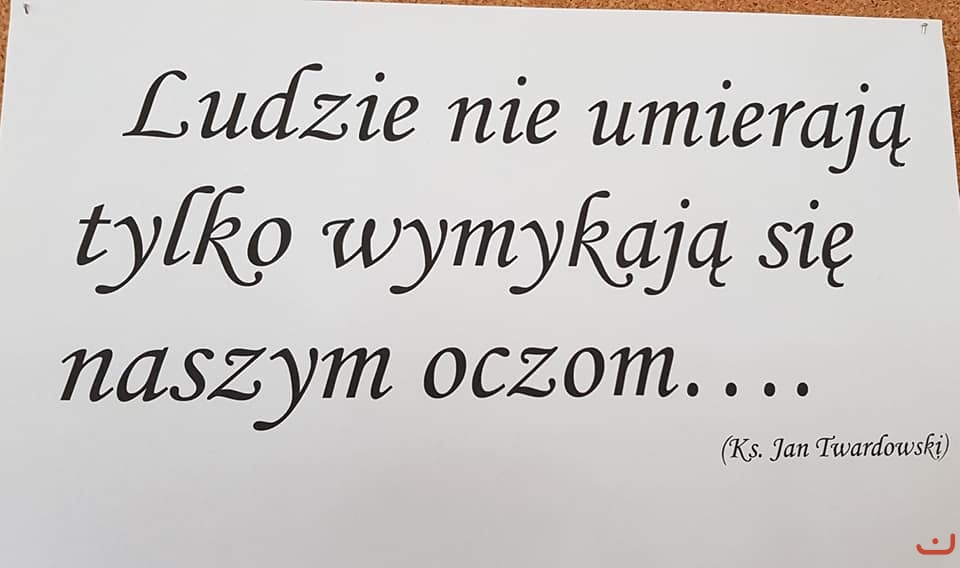 Ludzie nie umierają
tylko wymykają się
naszym oczom....
(Ks. Jan Twardowski)